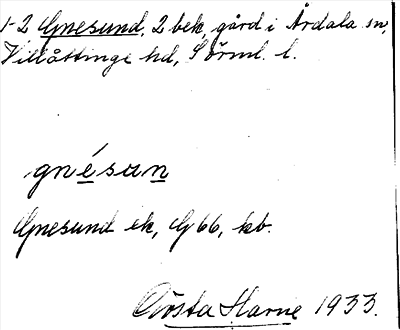 1-2 Gnesund, 2 bek, gård i Årdala sn,
Villåttinge hd, Sörml. l.
gnésan
Gnesund ek, G 66, kb.
Gösta Harne 1933.